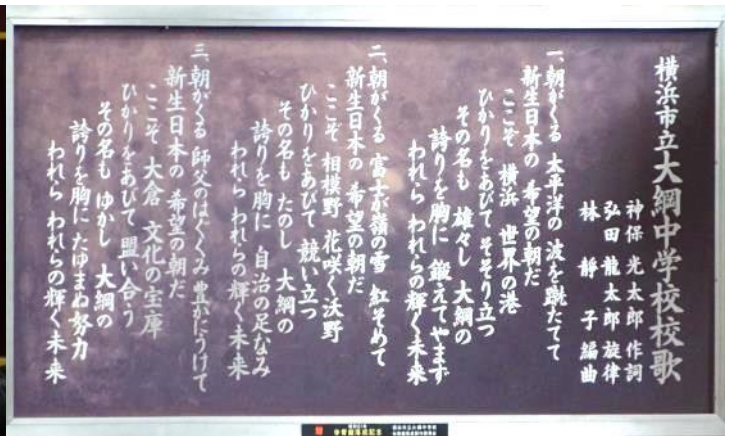 横浜市立大綱中学校校歌
神保光太郎 作詞
弘田龍太郎 旋律
林静子 編曲
一、朝がくる 太平洋の 波を蹴たてて
新生日本の 希望の朝だ
ここぞ 横浜 世界の港
ひかりをあびて そそり立つ
その名も 雄々し 大綱の
誇りを胸に 鍛えてやまず
われら われらの輝く未来
二、朝がくる 富士が嶺の雪 紅そめて
新生日本の 希望の朝だ
ここぞ 相模野 花咲く沃野
ひかりをあびて 競い立つ
その名も たのし 大綱の
誇りを胸に 自治の足なみ
われら われらの輝く未来
三、朝がくる 師父のはぐくみ 豊かにうけて
新生日本の 希望の朝だ
ここぞ 大倉 文化の宝庫
ひかりをあびて 盟い合う
その名も ゆかし 大綱の
誇りを胸に たゆまぬ努力
われら われらの輝く未来